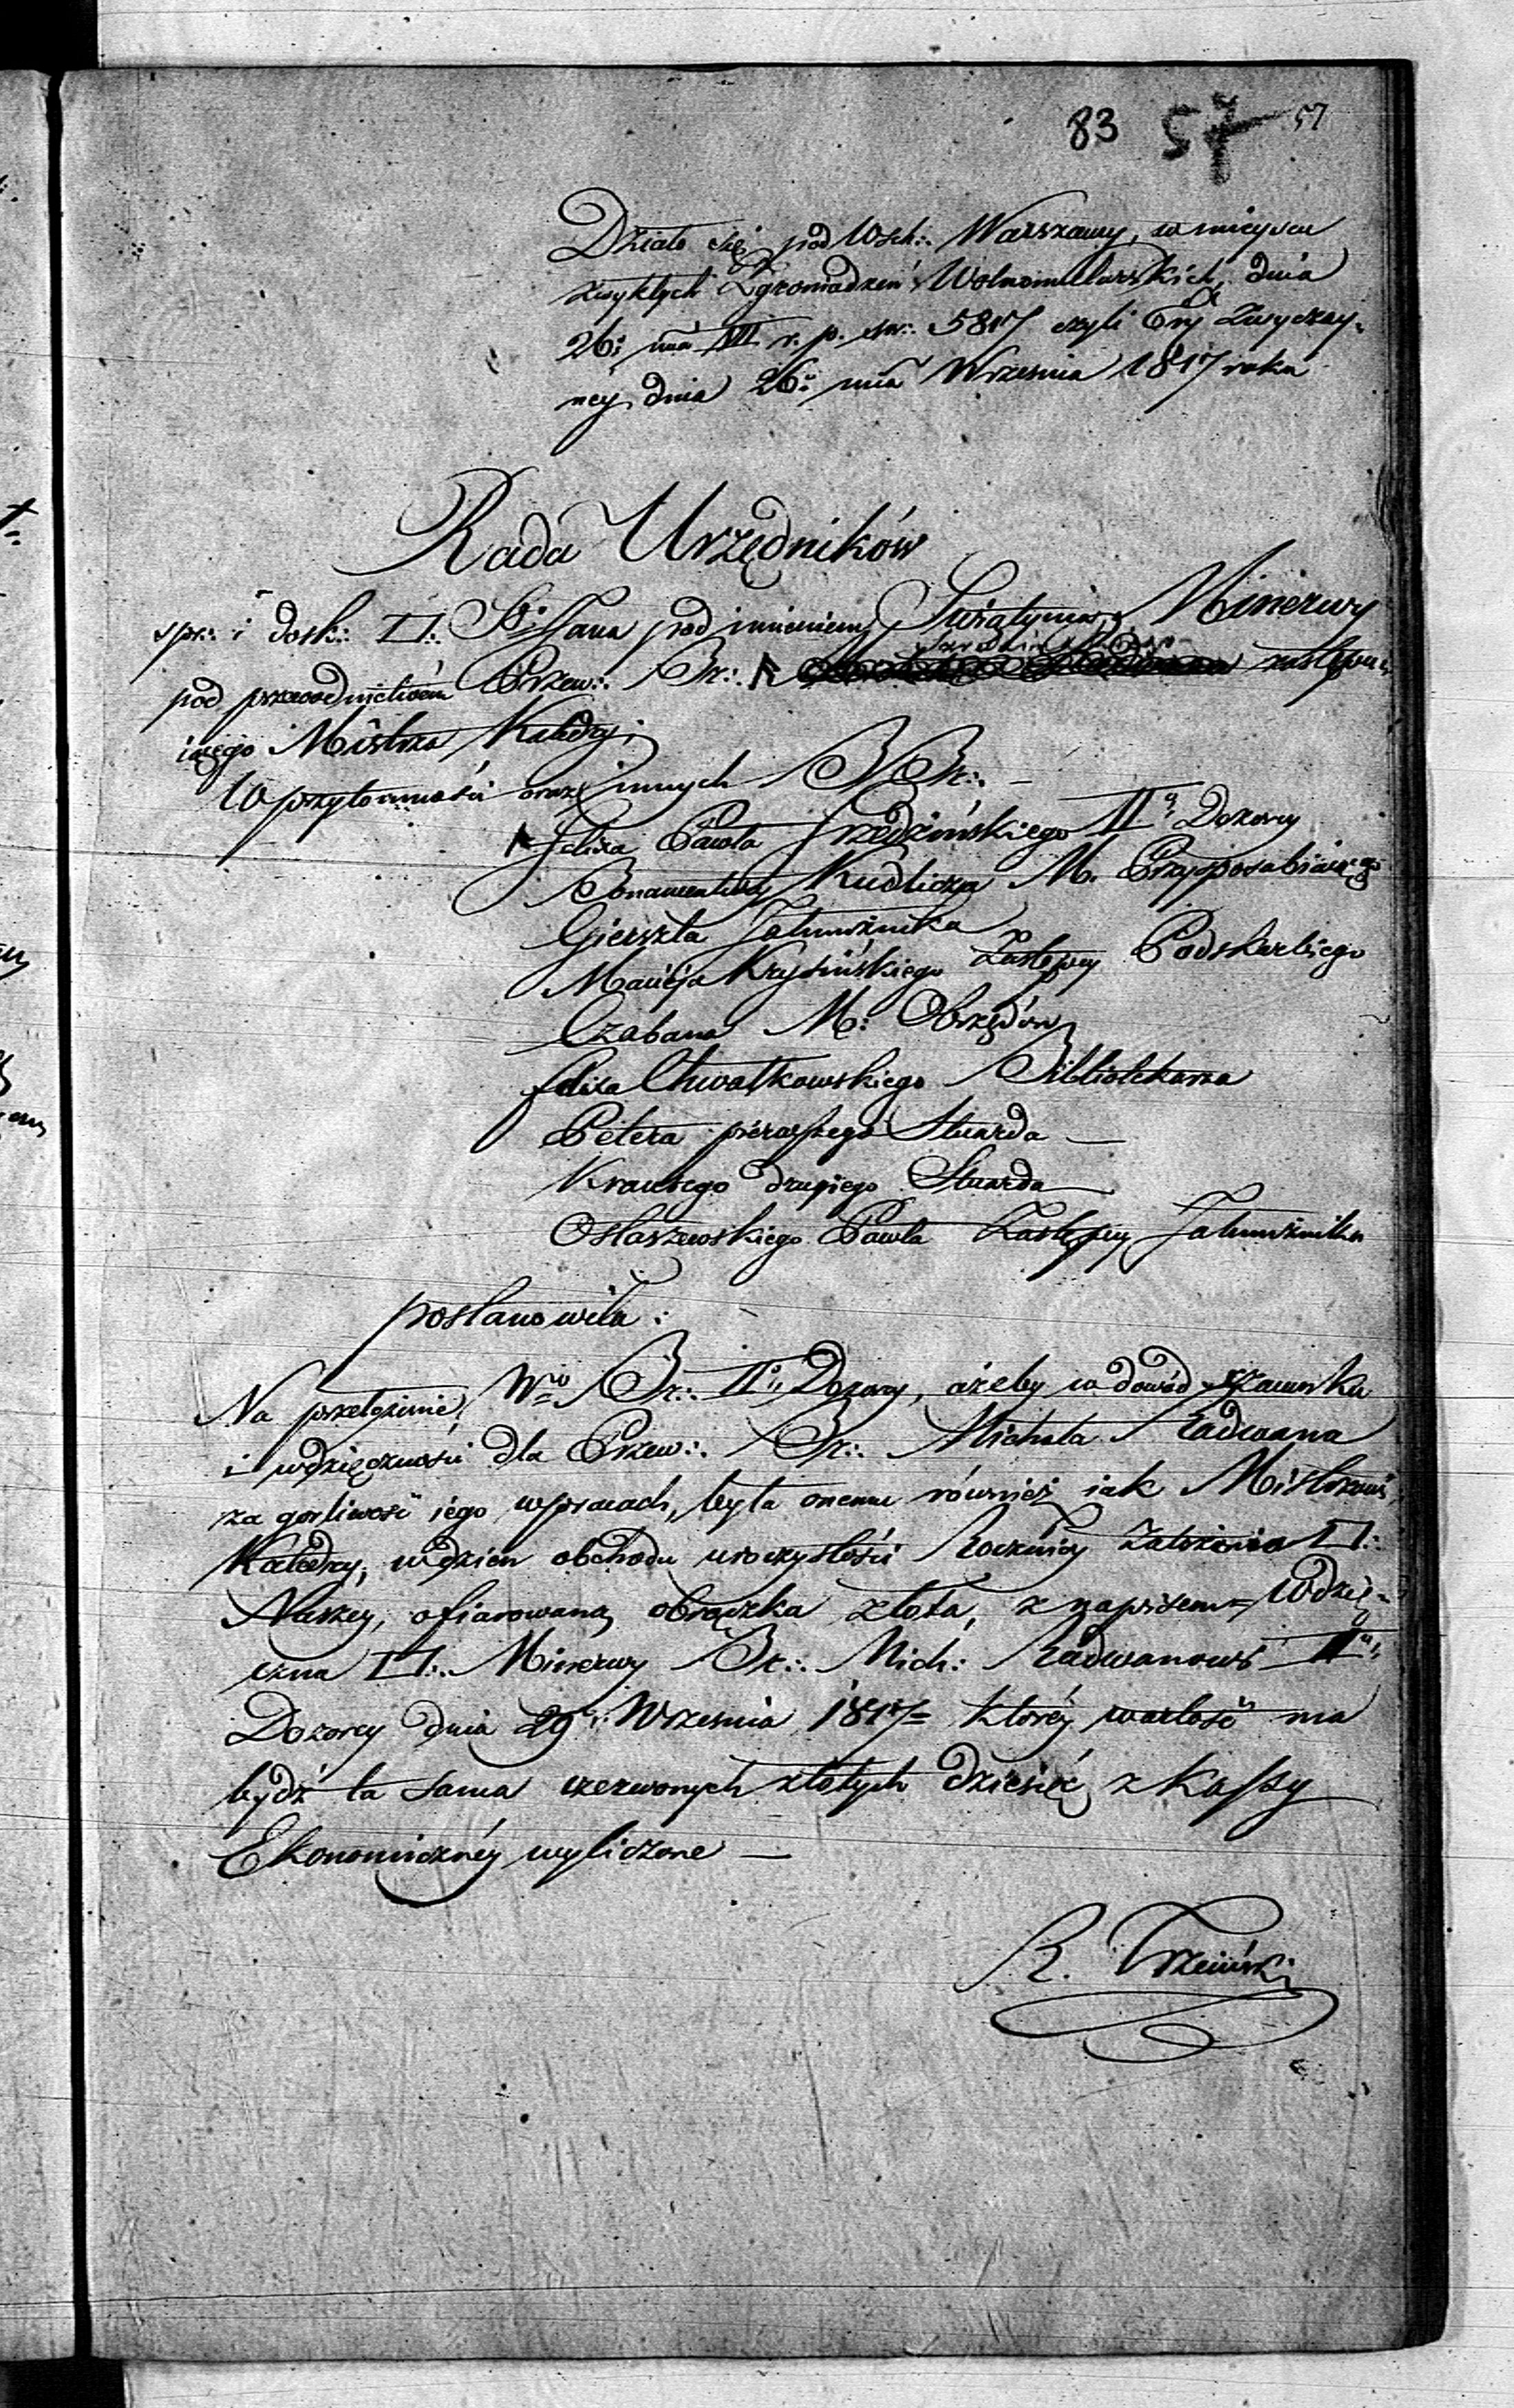 83 57 57
Działo się pod Wsch:. Warszawy, w mieyscu
zwykłych Zgromadzeń Wolnomularskich, dnia
26: mca VII r. p. św:. 5817 czyli Ery Zwyczay-
ney dnia 26: mca Września 1817 roku
Rada Urzędników
spr:. i dosk:. □:. Sgo Jana pod imieniem Świątynia Minerwy
pod przewodnictwem Przew:. Br:. zastępu-
iącego Mistrza Katedry;
W przytomności oraz innych BBr:. —
Felixa Pawła Jrzędzińskiego IIgo Dozorcy
Bonawentury Kudlicza M. Przysposabiaiącego
Gierszta Jałmużnika
Macieja Krysińskiego Zastępcy Podskarbiego
Czabana M: Obrzędów
Felixa Chwałkowskiego Bibliotekarza
Petera pierwszego Stuarda —
Krausego drugiego Stuarda
Ostaszewskiego Pawła Zastępcy Jałmużnika
postanowiła:
Na przełożenie Wgo Br:. IIgo Dozorcy, ażeby w dowód szacunku
i wdzięczności dla Przew:. Br:. Michała Radwana
za gorliwość iego w pracach, była onemu również iak Mistrzowi
Katedry, w dzień obchodu uroczystości Rocznicy Założenia □:.
Naszey, ofiarowana obrączka złota, z napisem = Wdzię-
czna □:. Minerwy Br:. Mich: Radwanowi IImu
Dozorcy dnia 29: Września 1817 = którey wartość ma
bydź ta sama czerwonych złotych dziesięć z Kassy
Ekonomiczney wyliczone —
R. Trzciński